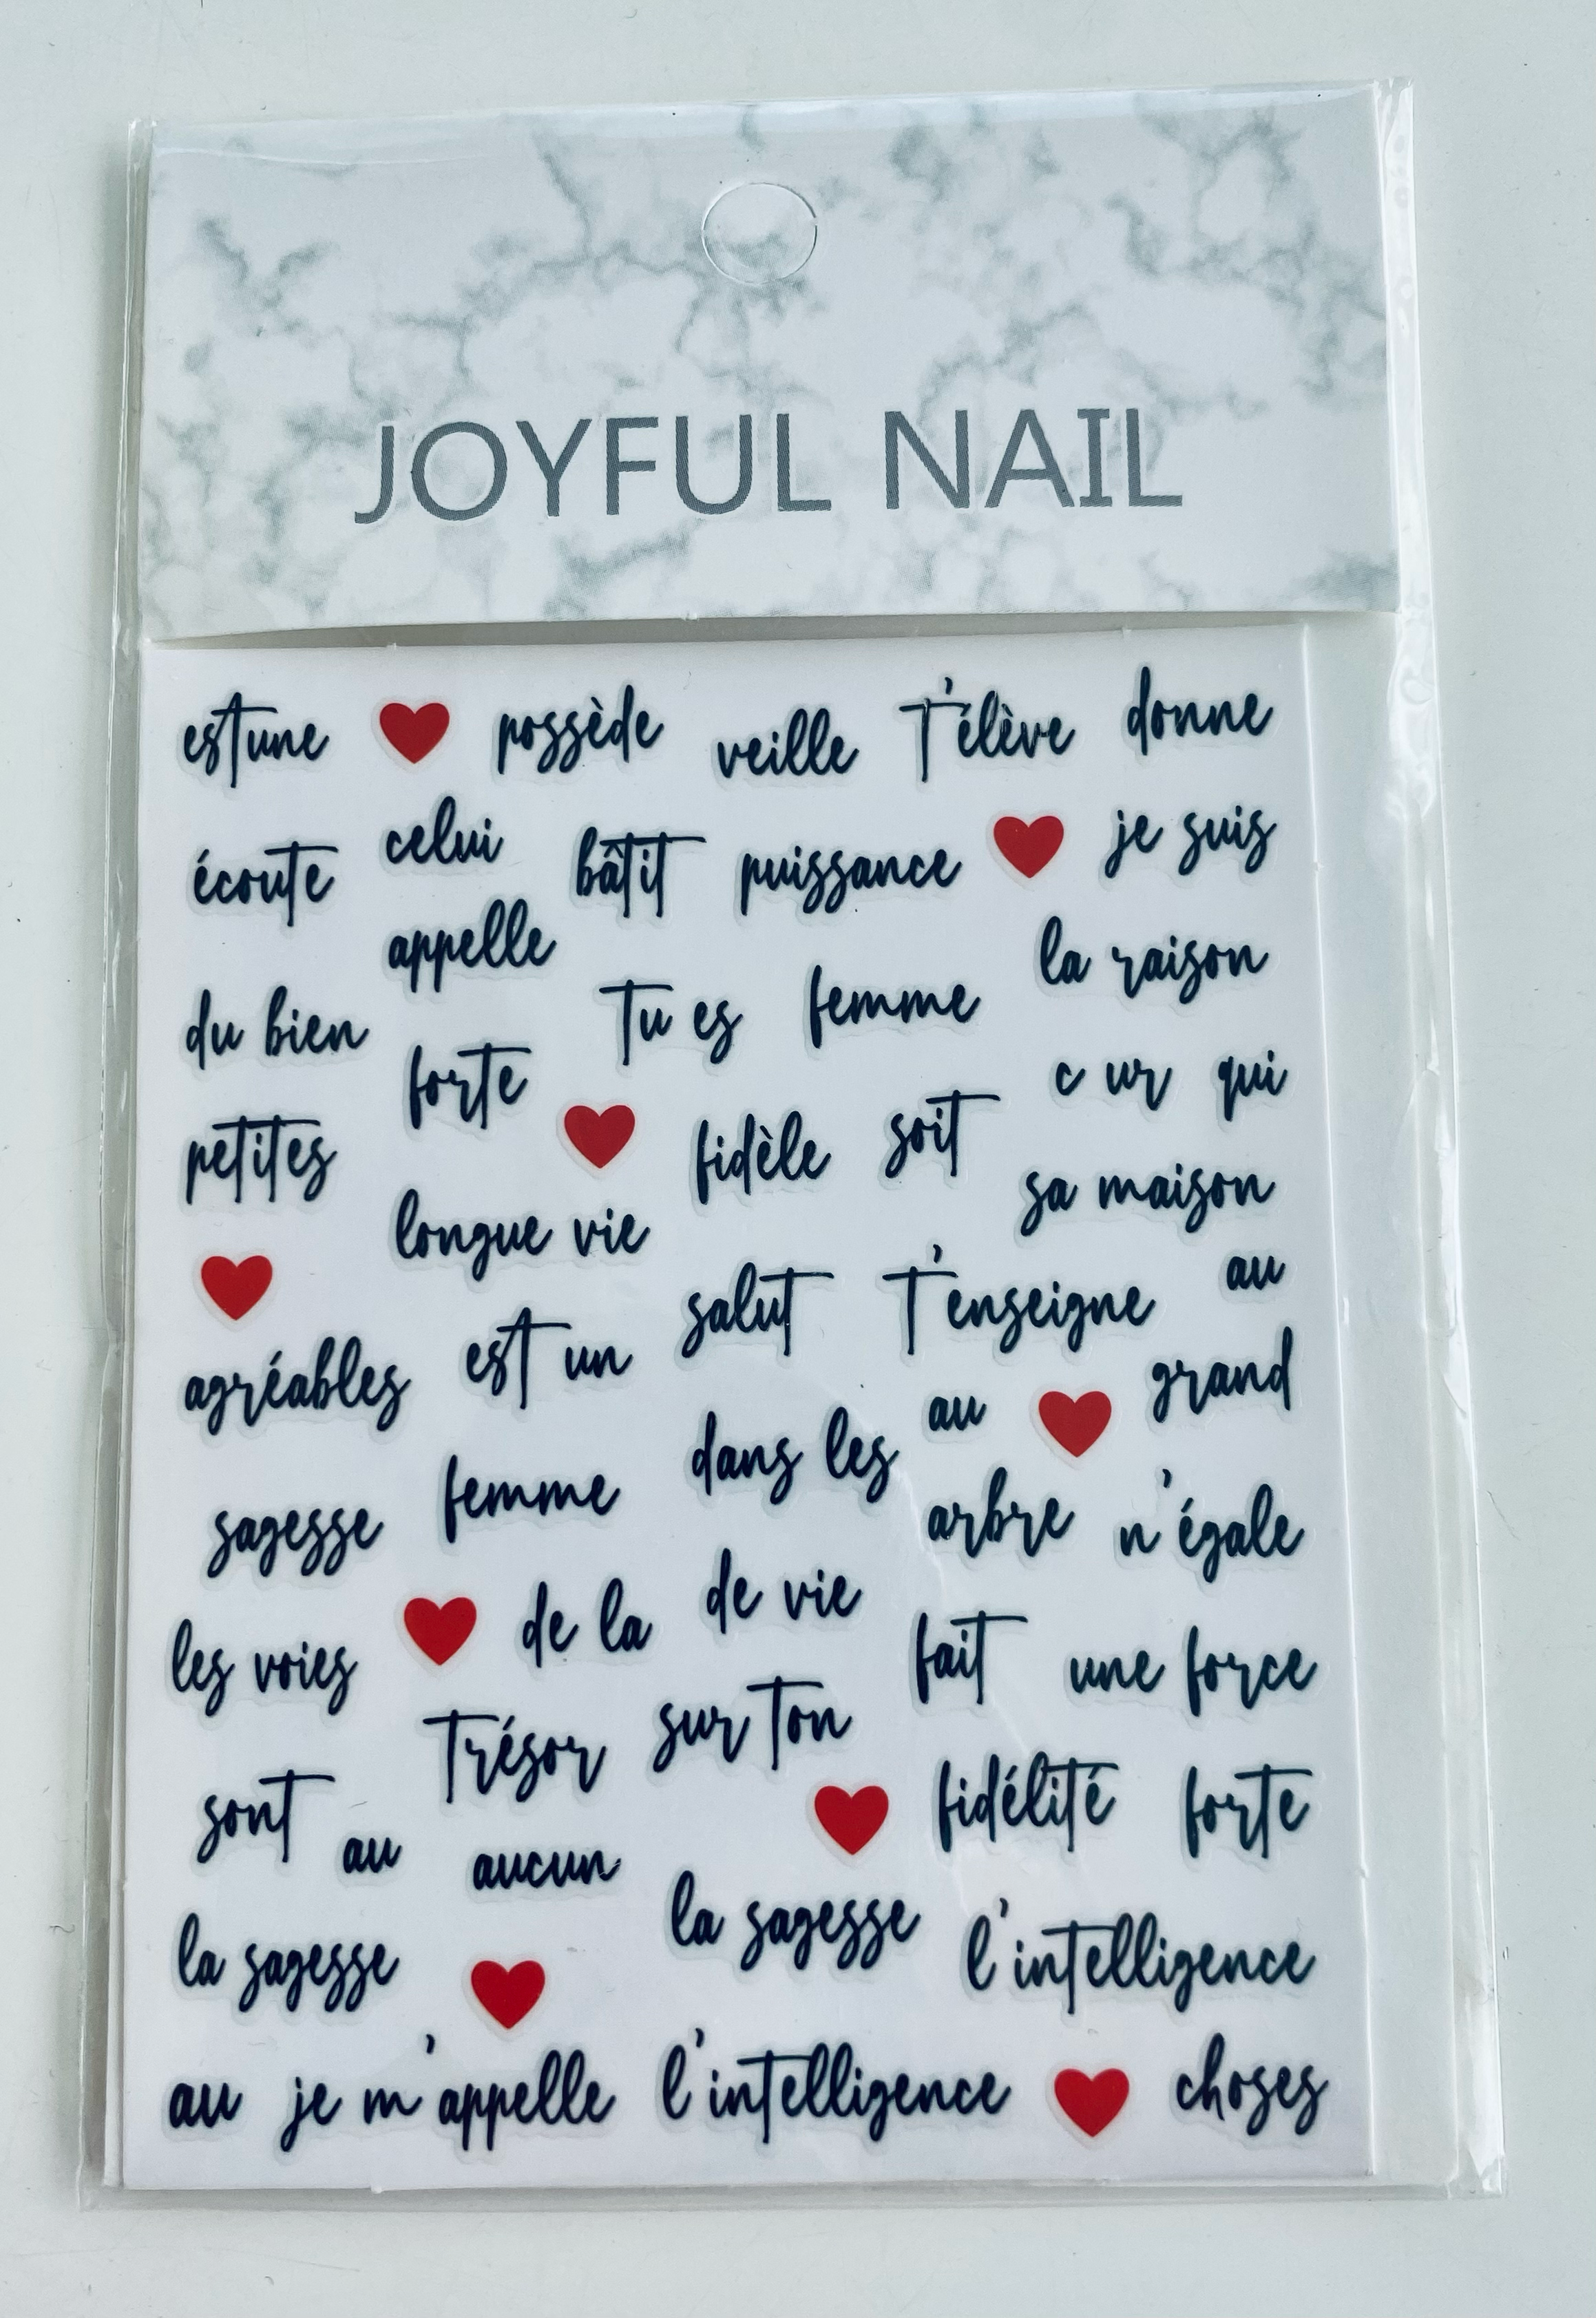 JOYFUL NAIL
est une possède veille t'élève donne
écoute celui bâtit puissance je suis
appelle la raison
du bien tu es femme
forte c ur qui
petites fidèle soit
longue vie sa maison
salut t'enseigne au
agréables est un au grand
femme dans les
sagesse arbre n'égale
les voies de la de vie fait une force
trésor sur ton
sont au aucun fidélité forte
la sagesse la sagesse l'intelligence
au je m'appelle l'intelligence choses